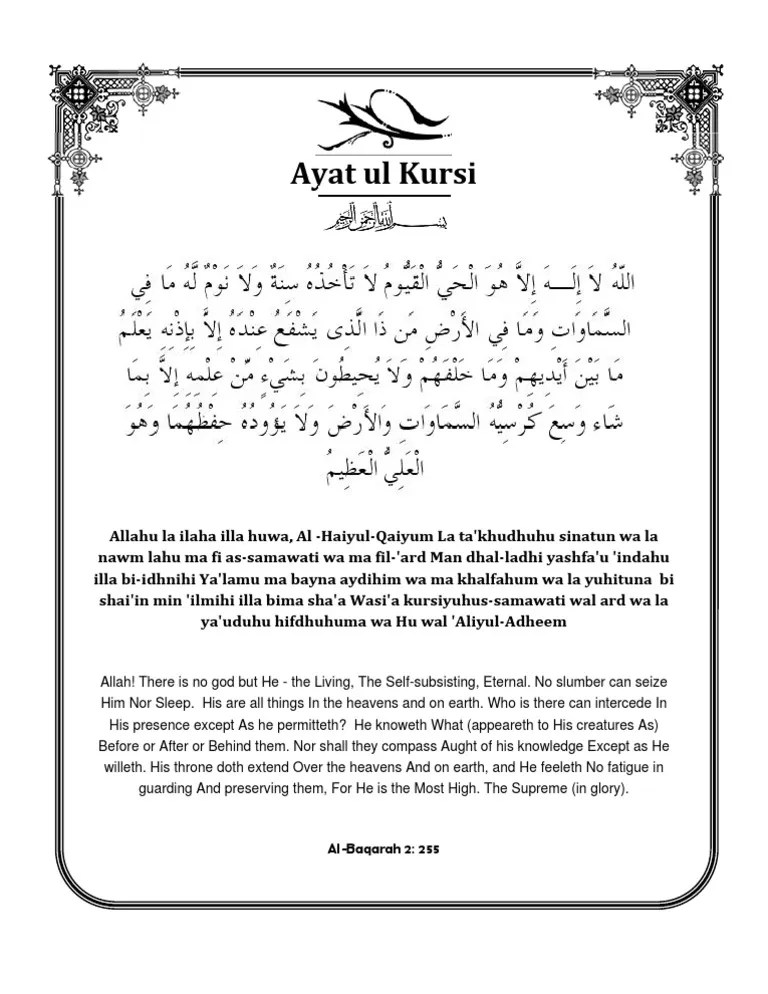 Ayat ul Kursi
بسم الله الرحمن الرحيم
اللّهُ لاَ إِلَـــهَ إِلاَّ هُوَ الْحَيُّ الْقَيُّومُ لاَ تَأْخُذُهُ سِنَةٌ وَلاَ نَوْمٌ لَّهُ مَا فِي
السَّمَاوَاتِ وَمَا فِي الأَرْضِ مَن ذَا الَّذِى يَشْفَعُ عِنْدَهُ إِلاَّ بِإِذْنِهِ يَعْلَمُ
مَا بَيْنَ أَيْدِيهِمْ وَمَا خَلْفَهُمْ وَلاَ يُحِيطُونَ بِشَيْءٍ مِّنْ عِلْمِهِ إِلاَّ بِمَا
شَاء وَسِعَ كُرْسِيُّهُ السَّمَاوَاتِ وَالأَرْضَ وَلاَ يَؤُودُهُ حِفْظُهُمَا وَهُوَ
الْعَلِيُّ الْعَظِيمُ
Allahu la ilaha illa huwa, Al -Haiyul-Qaiyum La ta'khudhuhu sinatun wa la
nawm lahu ma fi as-samawati wa ma fil-'ard Man dhal-ladhi yashfa'u 'indahu
illa bi-idhnihi Ya'lamu ma bayna aydihim wa ma khalfahum wa la yuhituna  bi
shai'in min 'ilmihi illa bima sha'a Wasi'a kursiyuhus-samawati wal ard wa la
ya'uduhu hifdhuhuma wa Hu wal 'Aliyul-Adheem
Allah! There is no god but He - the Living, The Self-subsisting, Eternal. No slumber can seize
Him Nor Sleep.  His are all things In the heavens and on earth. Who is there can intercede In
His presence except As he permitteth?  He knoweth What (appeareth to His creatures As)
Before or After or Behind them. Nor shall they compass Aught of his knowledge Except as He
willeth. His throne doth extend Over the heavens And on earth, and He feeleth No fatigue in
guarding And preserving them, For He is the Most High. The Supreme (in glory).
Al-Baqarah 2: 255